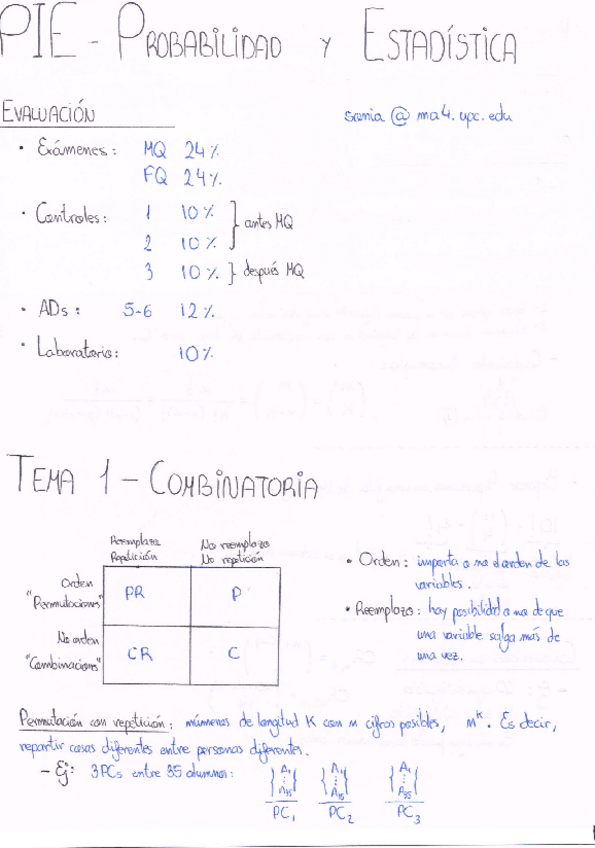 PIE - PROBABILIDAD Y ESTADÍSTICA
EVALUACIÓN
sonia @ ma4.upc.edu
• Exámenes: MQ 24%
FQ 24%
• Controles: 1 10%
2 10% } antes MQ
3 10% } después MQ
• ADs: 5-6 12%
• Laboratorio: 10%
TEMA 1 - COMBINATORIA
Reemplazo No reemplazo
Repetición No repetición
Orden "Permutaciones" PR P
No orden "Combinaciones" CR C
• Orden: importa o no el orden de las
variables.
• Reemplazo: hay posibilidad o no de que
una variable salga más de
una vez.
Permutación con repetición: números de longitud K con m cifras posibles, m^K. Es decir,
repartir cosas diferentes entre personas diferentes.
- Ej: 3 PCs entre 35 alumnos:
PC1 PC2 PC3